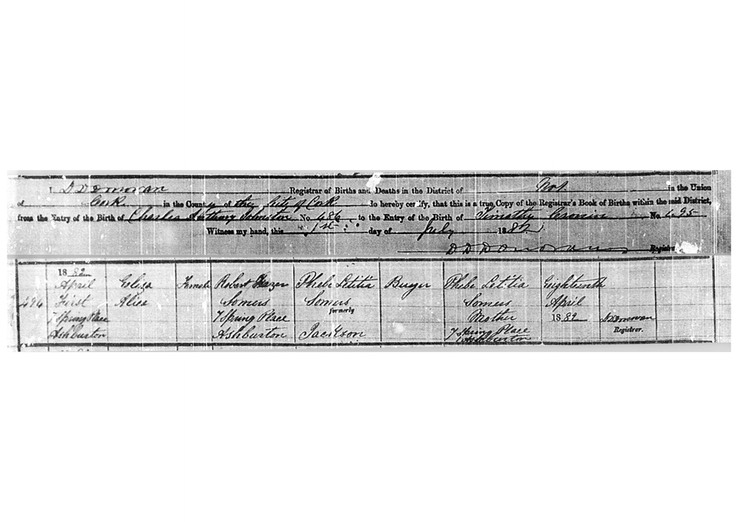 I, D D Donovan Registrar of Births and Deaths in the District of No 1 in the Union
of Cork in the County of the City of Cork do hereby certify, that this is a true Copy of the Registrar's Book of Births within the said District,
from the Entry of the Birth of Charles Anthony Johnston No. 486 to the Entry of the Birth of Timothy Cronin No. 495
Witness my hand, this 1st day of July 1882
D D Donovan Registrar
1882
April Eliza Female Robert Phebe Letitia Burger Phebe Letitia Eighteenth
484 First Alice Somers Somers Somers April
7 Spring Place 7 Spring Place formerly Mother 1882 D D Donovan
Ashburton Ashburton Jackson 7 Spring Place Registrar.
Ashburton